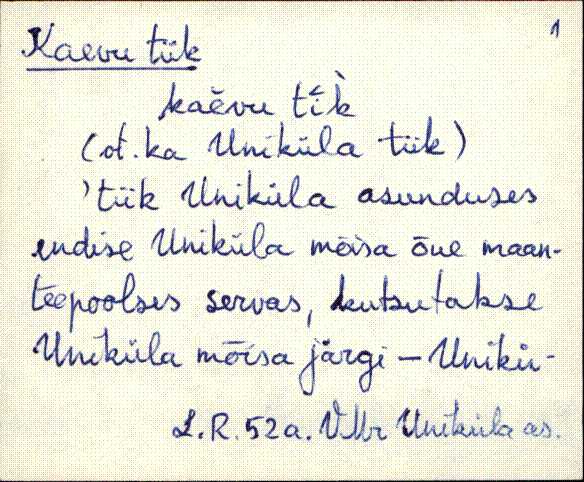 1
Kaevu tiik
kaĕvu tík̀
(vt. ka Uniküla tiik)
'tiik Uniküla asunduses
endise Uniküla mõisa õue maan-
teepoolses servas, kutsutakse
Uniküla mõisa järgi – Unikü-
L.R. 52a. VMr Uniküla as.